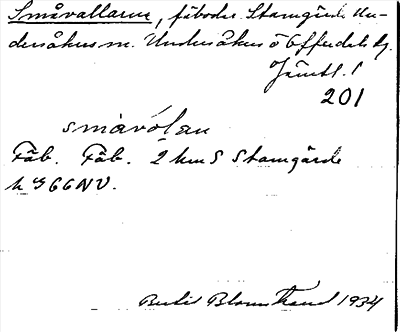 Småvallarne, fäbodar Stamgärde Un-
dersåkers sn. Undersåkers o Offerdals tg.
Jämtl. l
201
småvólan
Fäb. Fäb. 2 km S Stamgärde
k 366 NV.
Bertil Blomstrand 1934